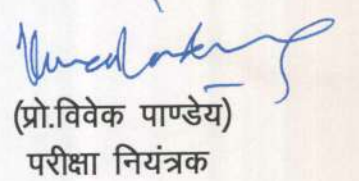 (प्रो.विवेक पाण्डेय)
परीक्षा नियंत्रक